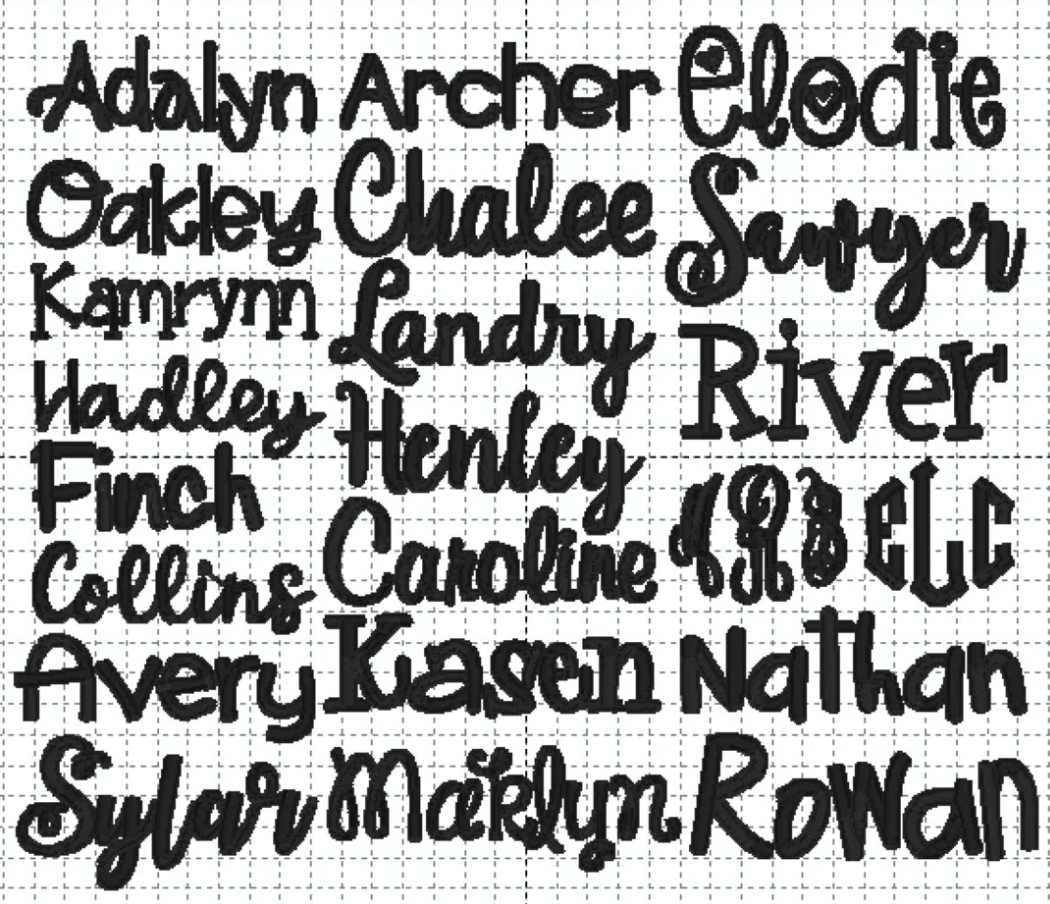 Adalyn
Oakley
Kamrynn
Hadley
Finch
Collins
Avery
Sylar
Archer
Chalee
Landry
Henley
Caroline
Kasen
Maiklyn
Elodie
Sawyer
River
eLC
Nathan
Rowan